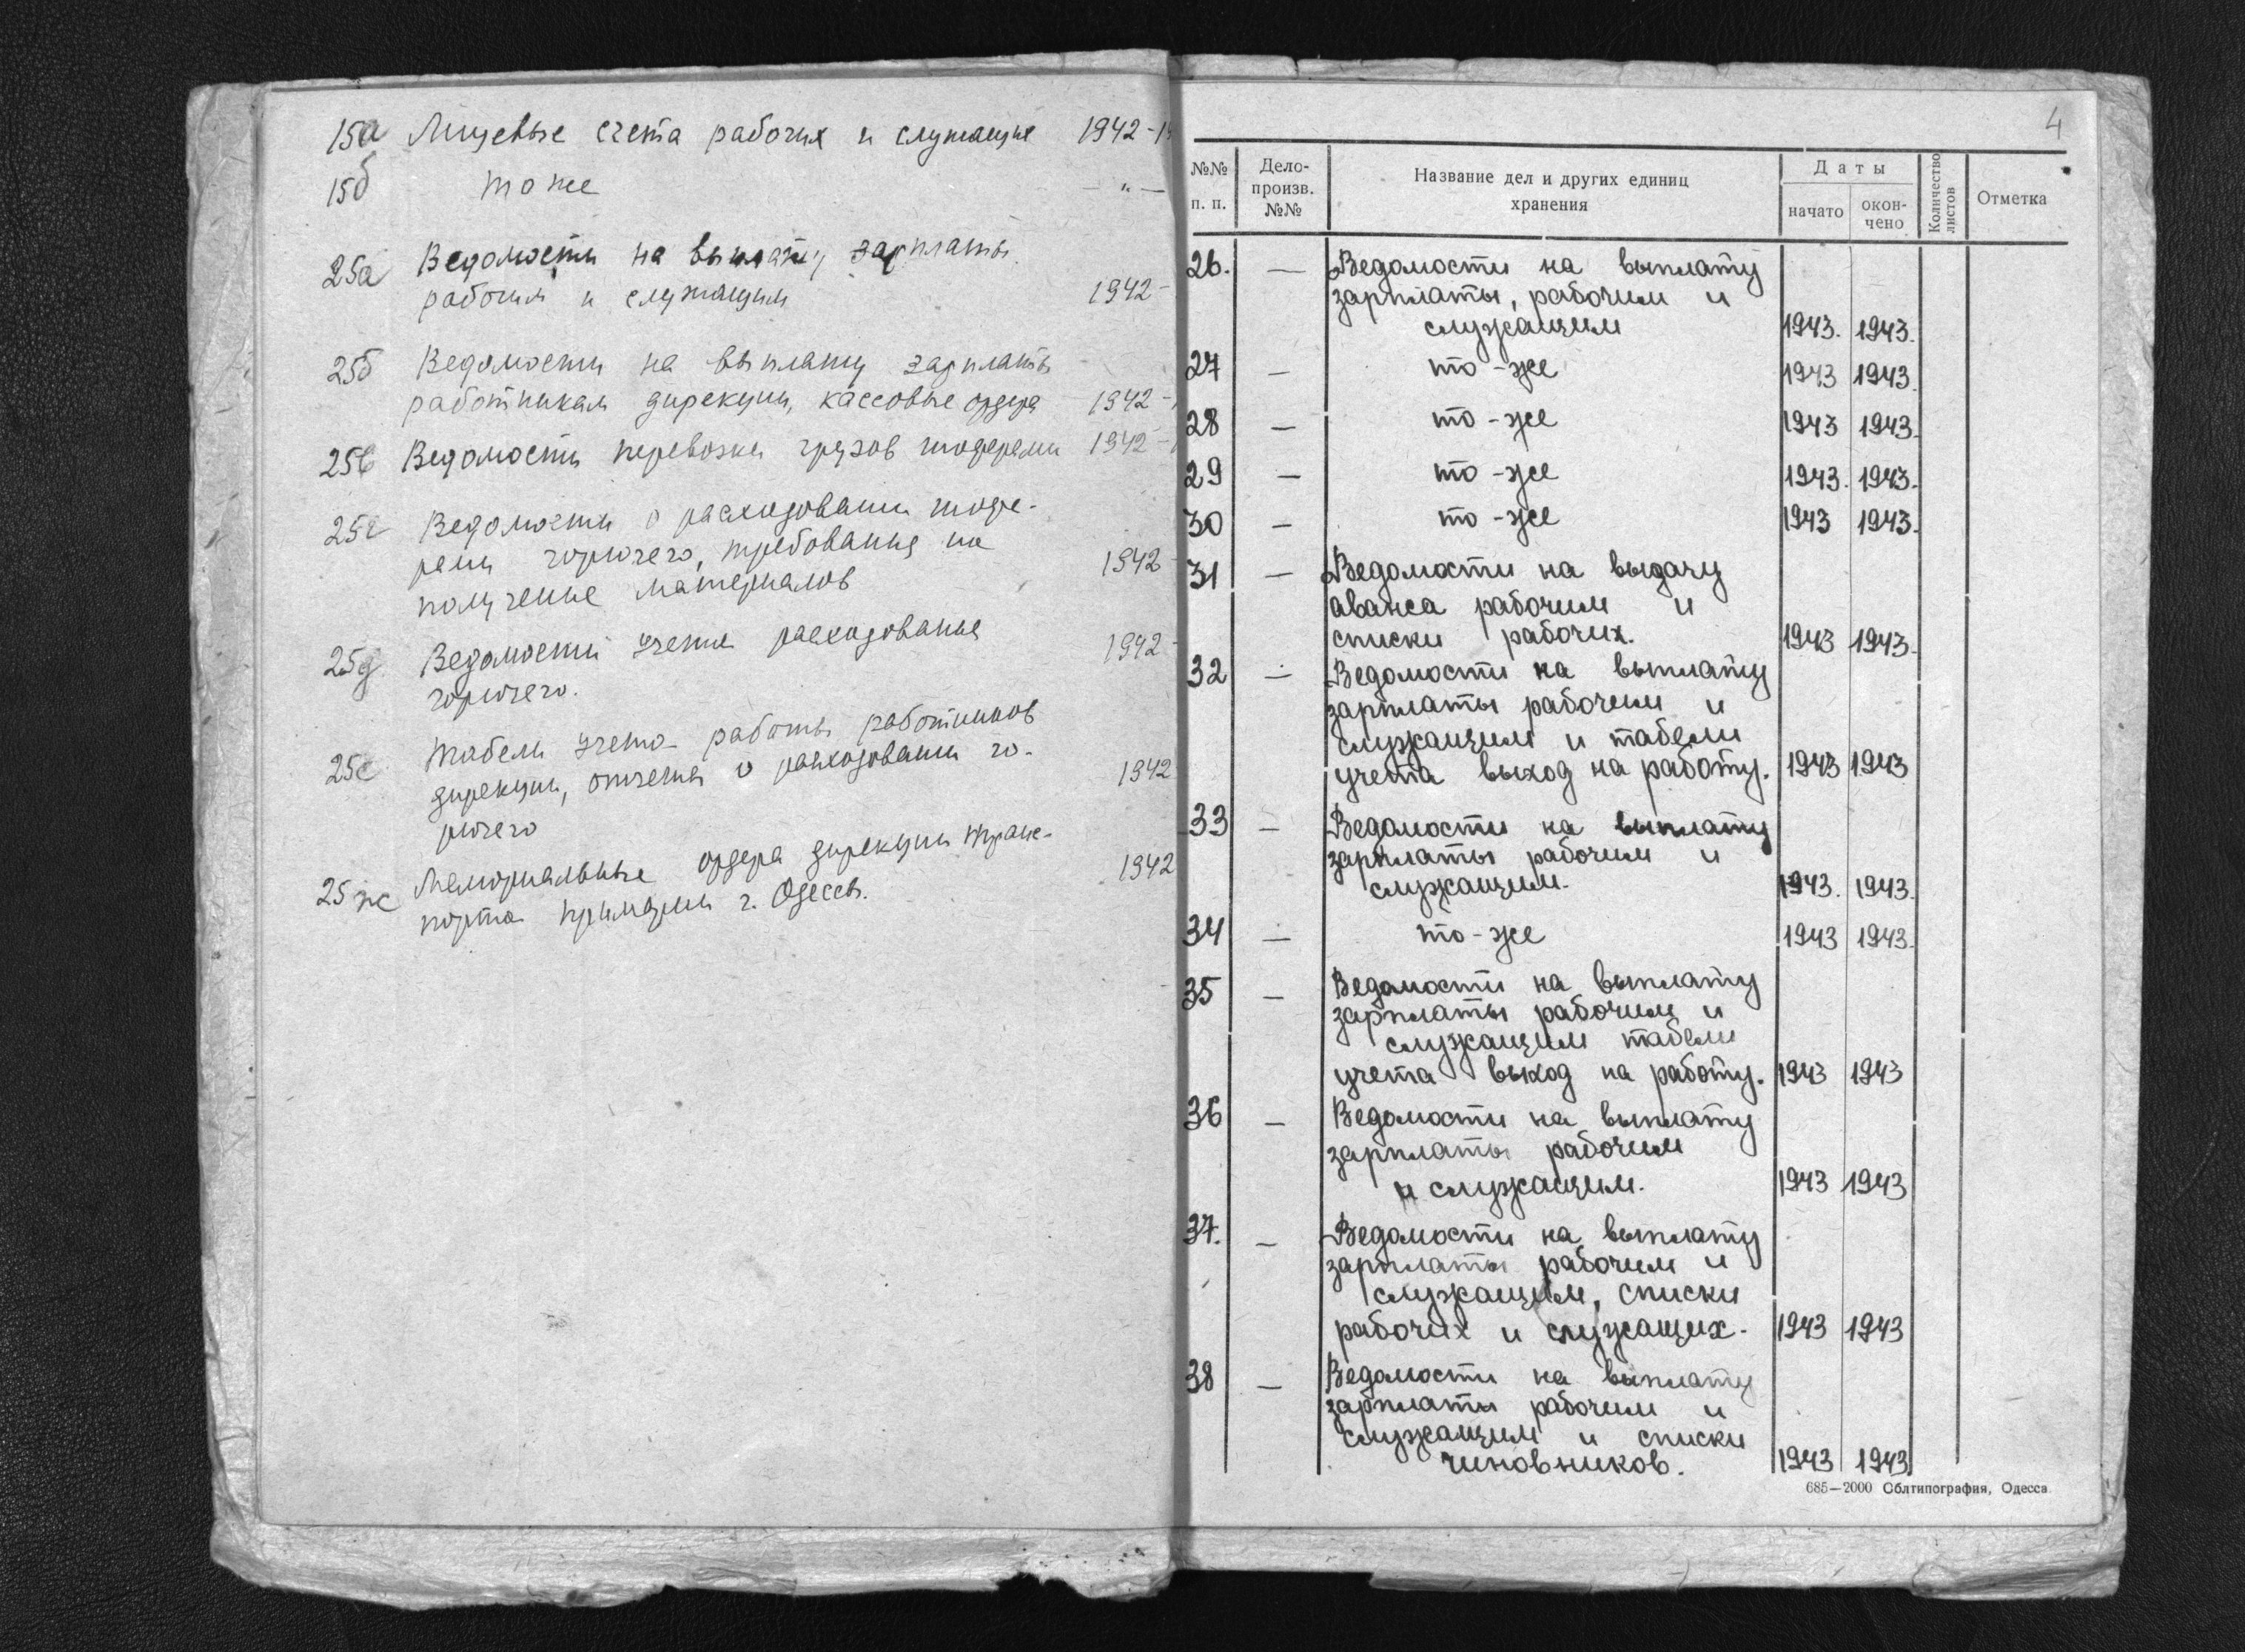 15а Лицевые счета рабочих и служащих 1942-19
15б то же — " —
25а Ведомости на выплату зарплаты
рабочим и служащим 1942-
25б Ведомости на выплату зарплаты
работникам дирекции, кассовые ордера 1942-
25в Ведомости перевозки грузов шоферами 1942-
25г Ведомости о расходовании шофе-
рами горючего, требования на
получение материалов 1942-
25д Ведомости учета расходования
горючего. 1942-
25е Табели учета работы работников
дирекции, отчеты о расходовании го-
рючего 1942
25ж Мемориальные ордера дирекции транс-
порта примэрии г. Одессы. 1942
4
№№ п. п.
Дело-
произв.
№№
Название дел и других единиц
хранения
Даты
начато
окон-
чено
Количество
листов
Отметка
26. — Ведомости на выплату
зарплаты, рабочим и
служащим 1943. 1943.
27 — то-же 1943 1943.
28 — то-же 1943 1943.
29 — то-же 1943. 1943.
30 — то-же 1943 1943.
31 — Ведомости на выдачу
аванса рабочим и
списки рабочих. 1943 1943.
32 — Ведомости на выплату
зарплаты рабочим и
служащим и табели
учета выход на работу. 1943 1943
33 — Ведомости на выплату
зарплаты рабочим и
служащим. 1943. 1943.
34 — то-же 1943 1943.
35 — Ведомости на выплату
зарплаты рабочим и
служащим табели
учета выход на работу. 1943 1943
36 — Ведомости на выплату
зарплаты рабочим
и служащим. 1943 1943
37. — Ведомости на выплату
зарплаты рабочим и
служащим, списки
рабочих и служащих. 1943 1943
38 — Ведомости на выплату
зарплаты рабочим и
служащим и списки
чиновников. 1943 1943
685—2000 Облтипография, Одесса